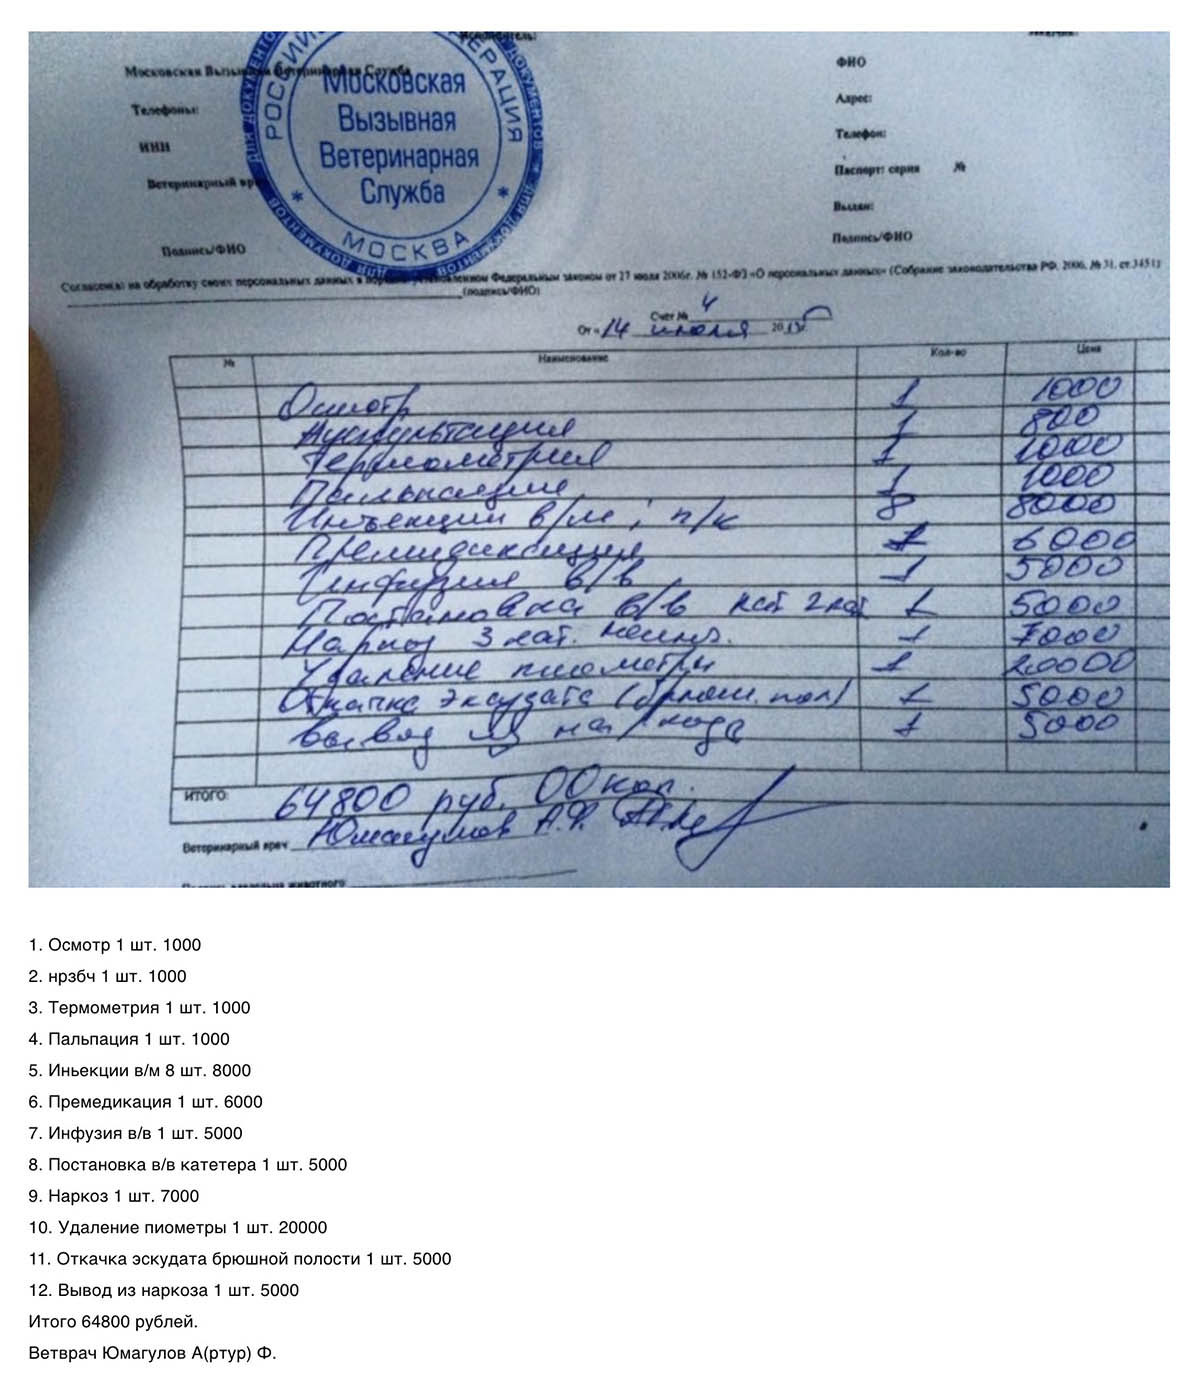 Исполнитель:
Заказчик:
Московская Вызывная Ветеринарная Служба
Телефоны:
ИНН
Ветеринарный врач
Подпись/ФИО
РОССИЙСКАЯ ФЕДЕРАЦИЯ
Московская
Вызывная
Ветеринарная
Служба
* МОСКВА *
ДЛЯ ДОКУМЕНТОВ
ФИО
Адрес:
Телефон:
Паспорт: серия №
Выдан:
Подпись/ФИО
Согласен(а) на обработку своих персональных данных в порядке, установленном Федеральным законом от 27 июля 2006г. № 152-ФЗ «О персональных данных» (Собрание законодательства РФ, 2006, № 31, ст.3451)
(подпись/ФИО)
Счет № 4
От « 14 июля 20 15г
№ Наименование Кол-во Цена
Осмотр 1 1000
Аускультация 1 800
Термометрия 1 1000
Пальпация 1 1000
Инъекции в/м ; п/к 8 8000
Премидикация 1 6000
Инфузия в/в 1 5000
Постановка в/в кат 2кат 1 5000
Наркоз 3 кат. 1 7000
Удаление пиометры 1 20000
Откачка эксудата (брюшн. пол) 1 5000
Вывод из наркоза 1 5000
ИТОГО: 64800 руб. 00 коп.
Ветеринарный врач Юмагулов А.Ф.
Подпись владельца животного
1. Осмотр 1 шт. 1000
2. нрзбч 1 шт. 1000
3. Термометрия 1 шт. 1000
4. Пальпация 1 шт. 1000
5. Иньекции в/м 8 шт. 8000
6. Премедикация 1 шт. 6000
7. Инфузия в/в 1 шт. 5000
8. Постановка в/в катетера 1 шт. 5000
9. Наркоз 1 шт. 7000
10. Удаление пиометры 1 шт. 20000
11. Откачка эскудата брюшной полости 1 шт. 5000
12. Вывод из наркоза 1 шт. 5000
Итого 64800 рублей.
Ветврач Юмагулов А(ртур) Ф.